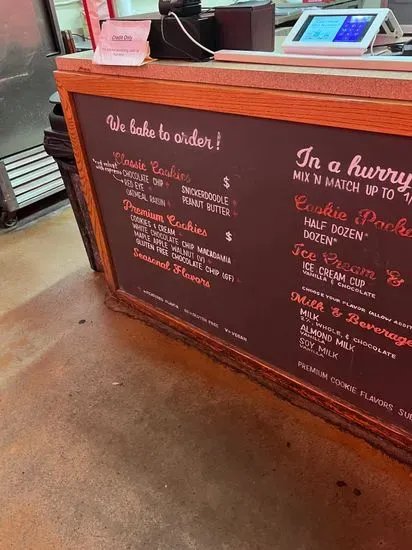 Credit Only
We bake to order!
Classic Cookies
CHOCOLATE CHIP
RED EYE
OATMEAL RAISIN
$
SNICKERDOODLE
PEANUT BUTTER
Premium Cookies
COOKIES & CREAM
$
WHITE CHOCOLATE CHIP MACADAMIA
MAPLE APPLE WALNUT (V)
GLUTEN FREE CHOCOLATE CHIP (GF)
Seasonal Flavors
GF=GLUTEN FREE
V=VEGAN
In a hurry
MIX 'N MATCH UP TO
Cookie Packs
HALF DOZEN*
DOZEN*
Ice Cream &
ICE CREAM CUP
VANILLA & CHOCOLATE
CHOOSE YOUR FLAVOR (ALLOW
Milk & Beverage
MILK
WHOLE, & CHOCOLATE
ALMOND MILK
VANILLA
SOY MILK
VANILLA
PREMIUM COOKIE FLAVORS